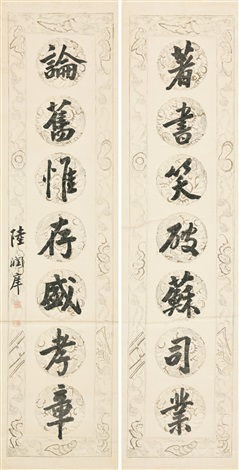 著書笑破蘇司業
論舊惟存盛孝章
陸潤庠